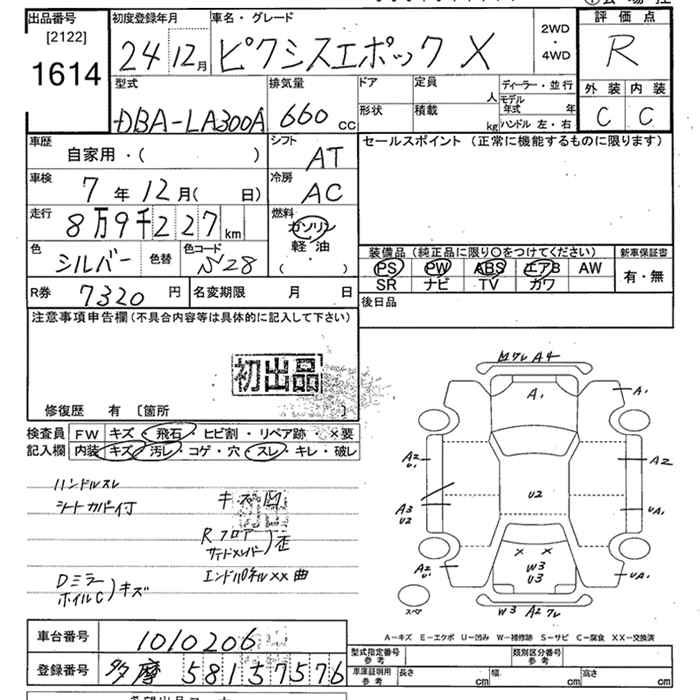 出品番号
[2122]
1614
初度登録年月
24 12月
車名・グレード
ピクシスエポック X
2WD
・
4WD
評価点
R
外装 内装
C C
型式
DBA-LA300A
排気量
660 cc
ドア
形状
定員 人
積載 kg
ディーラー・並行
モデル年式 年
ハンドル 左・右
車歴
自家用・( )
シフト
AT
セールスポイント (正常に機能するものに限ります)
車検
7年12月( 日)
冷房
AC
走行
8万9千227km
燃料
ガソリン
軽油
( ・ )
色
シルバー
色替
色コード
S28
装備品 (純正品に限り〇をつけてください)
PS PW ABS エアB AW
SR ナビ TV カワ
新車保証書
有・無
R券 7320円
名変期限 月 日
後日品
注意事項申告欄(不具合内容等は具体的に記入して下さい)
初出品
修復歴 有 [箇所 ]
検査員記入欄
FW キズ・飛石・ヒビ割・リペア跡・×要
内装 キズ・汚レ・コゲ・穴・スレ・キレ・破レ
ハンドルスレ
シートカバー付
キズ凹
Rフロア
サイドメンバー)歪
エンドパネルXX曲
Dミラー
ホイルC)キズ
A4
A1
A1
A2
U1
A2
U2
A3
U2
UA1
A2
U1
W3
U3
UA1
スペア
W3 A2
A-キズ E-エクボ U-凹み W-補修跡 S-サビ C-腐食 XX-交換済
車台番号
1010206
登録番号
多摩 581 57576
型式指定番号
参考
類別区分番号
参考
車庫証明用
参考
長さ cm
幅 cm
高さ cm